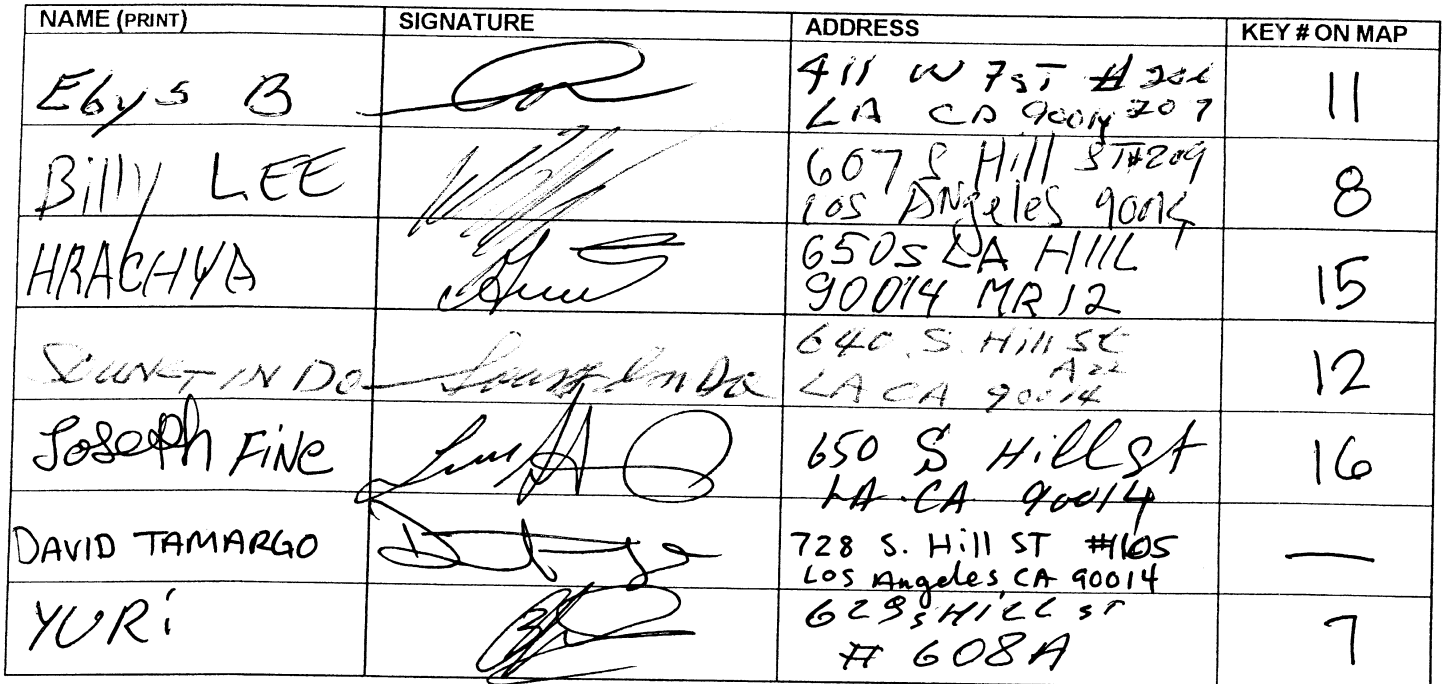 NAME (PRINT) SIGNATURE ADDRESS KEY # ON MAP
Ebys B 411 W 7 ST # 206 11
LA CA 90014 207
Billy LEE 607 S Hill ST #209 8
Los ANgeles 90014
HRACHYA 650 S LA HILL 15
90014 MR 12
IN DO 640 S. Hill St 12
LA CA 90014
Joseph FiNe 650 S Hill st 16
LA CA 90014
DAVID TAMARGO 728 S. Hill ST #105 —
Los Angeles CA 90014
YURi 629 S HiLL ST 7
# 608A